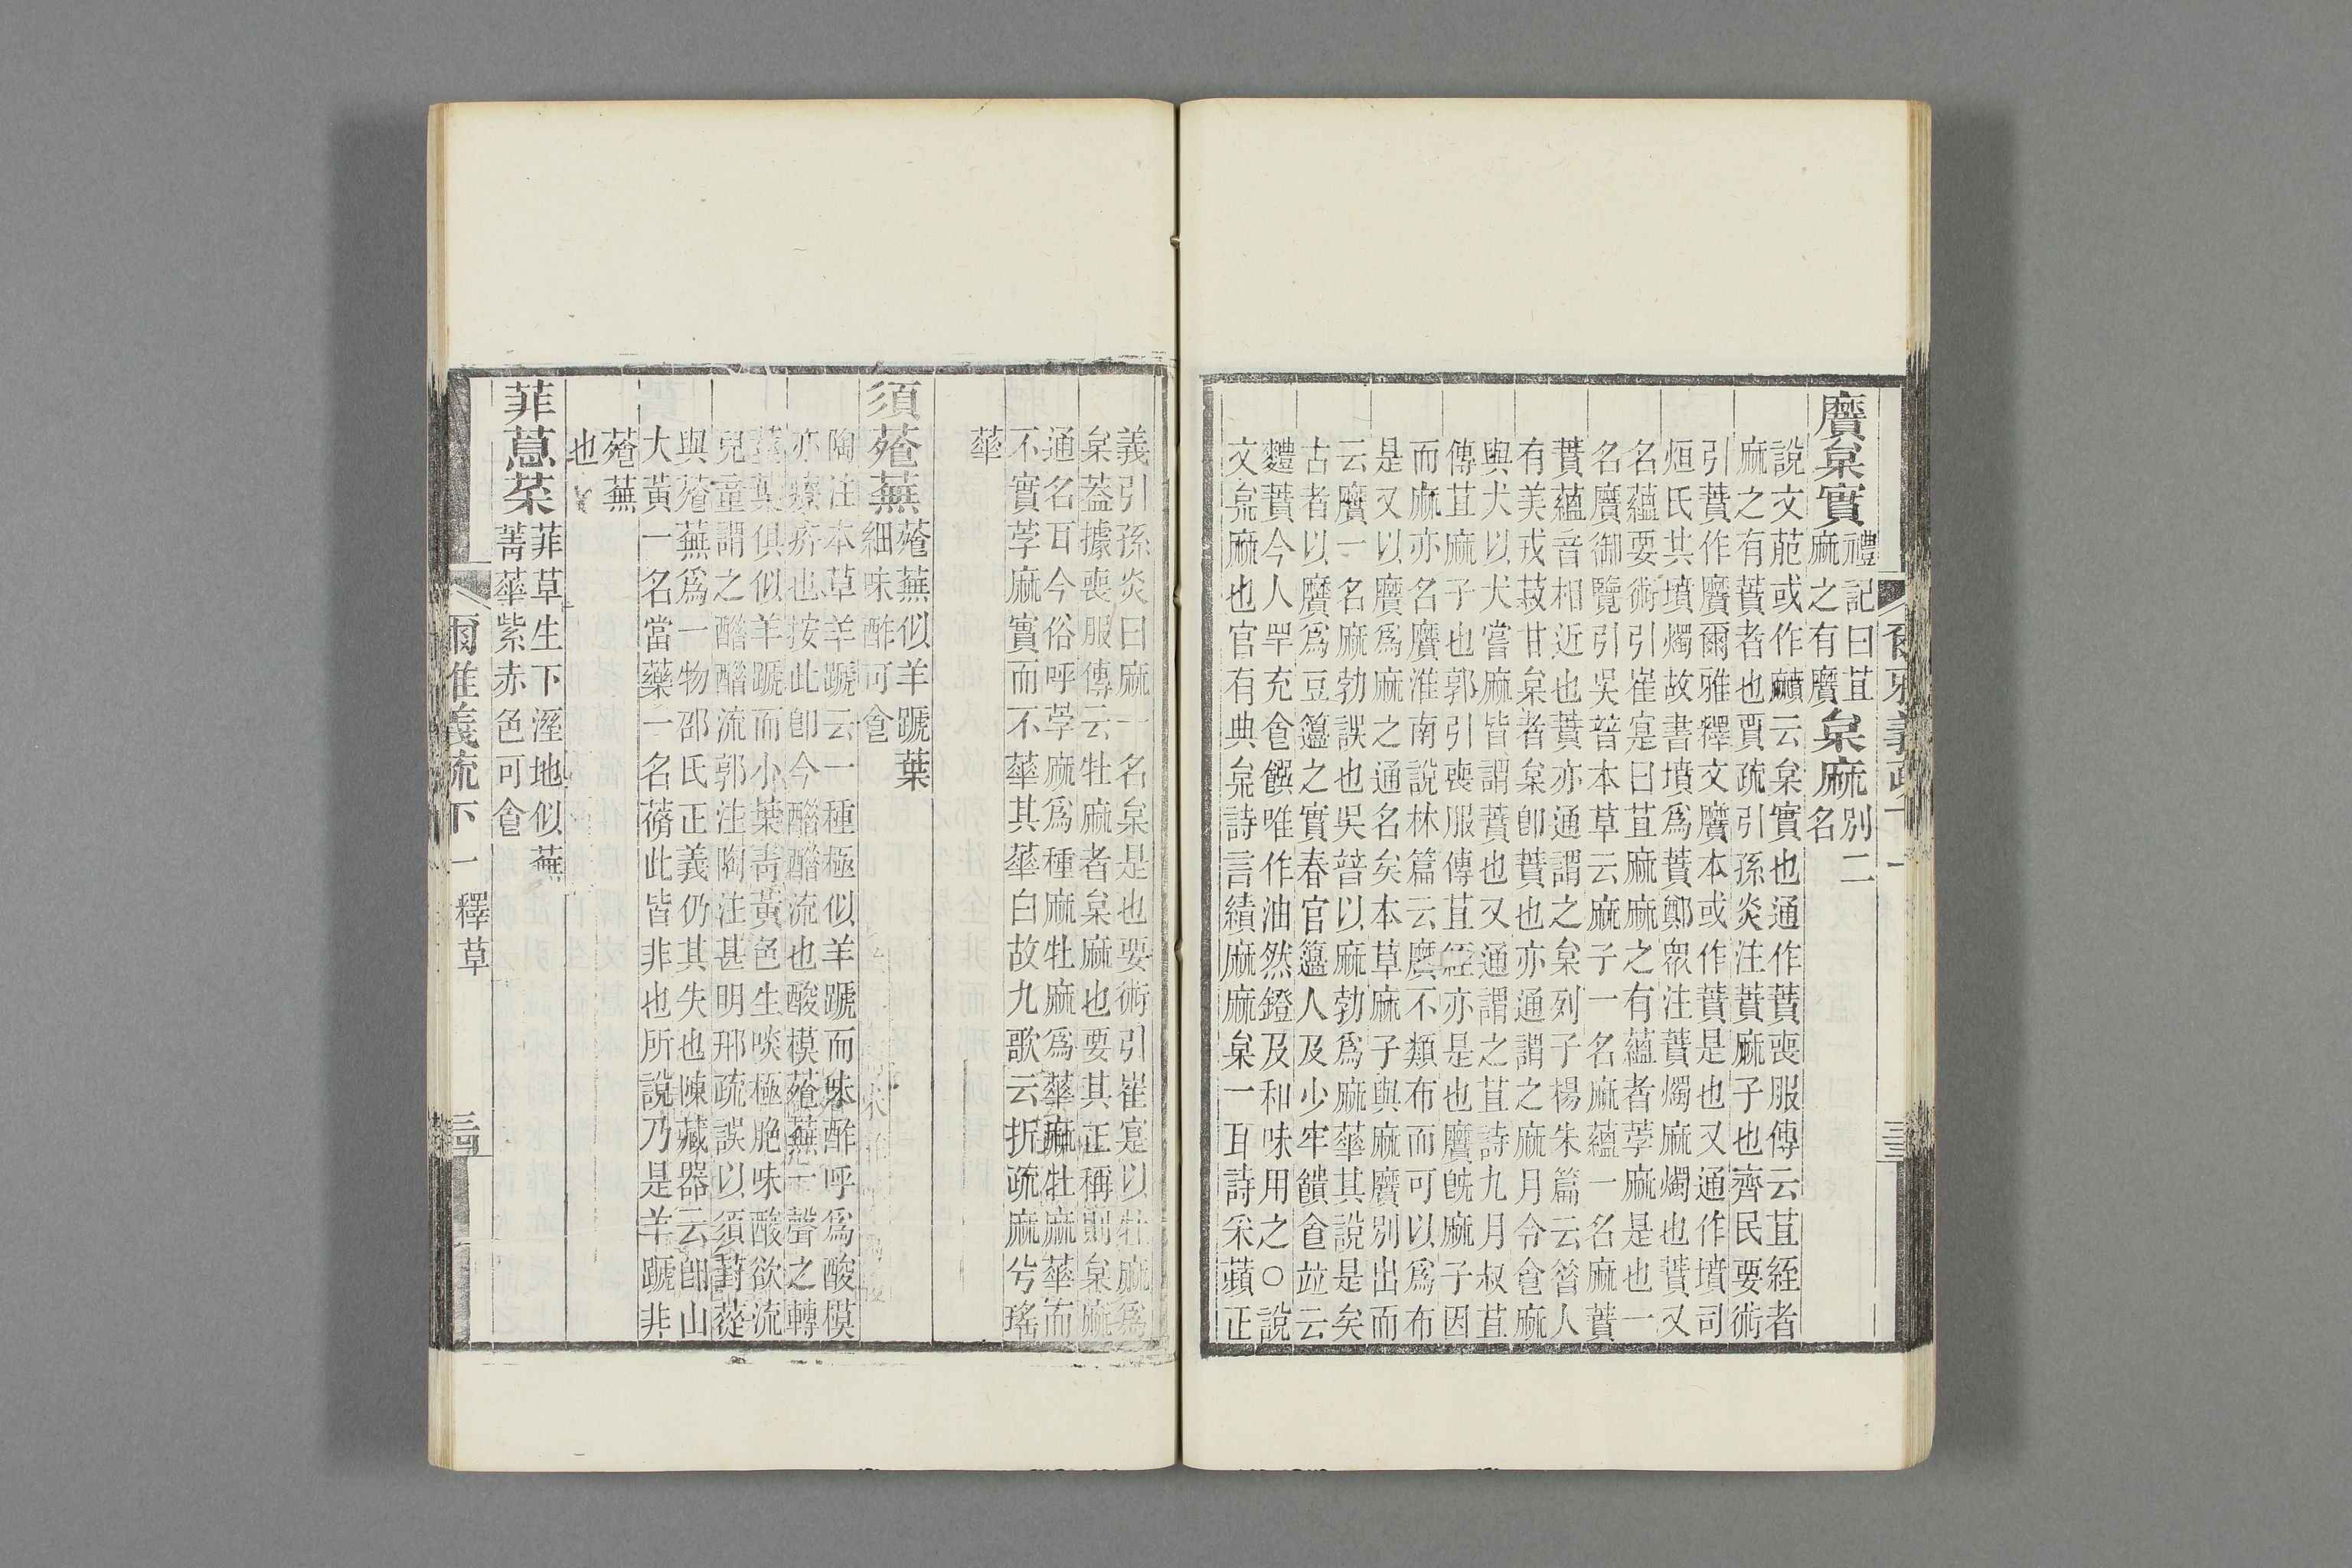 爾雅義疏下一
三三
黂枲實
禮記曰苴
麻之有黂
枲麻
別二
名
說文萉或作𪎰云枲實也通作蕡喪服傳云苴絰者
麻之有蕡者也賈疏引孫炎注蕡麻子也齊民要術
引蕡作黂爾雅釋文黂本或作蕡是也又通作墳司
烜氏共墳燭故書墳爲蕡鄭眾注蕡燭麻燭也蕡又
名蘊要術引崔寔曰苴麻麻之有蘊者荸麻是也一
名黂御覽引吳普本草云麻子一名麻蘊一名麻蕡
蕡蘊音相近也蕡亦通謂之枲列子楊朱篇云昝人
有美戎菽甘枲者枲卽蕡也亦通謂之麻月令食麻
與犬以犬嘗麻皆謂蕡也又通謂之苴詩九月叔苴
傳苴麻子也郭引喪服傳苴絰亦是也黂旣麻子因
而麻亦名黂淮南說林篇云黂不類布而可以爲布
是又以黂爲麻之通名矣本草麻子與麻黂別出而
云黂一名麻勃誤也吳普以麻勃爲麻華其說是矣
古者以黂爲豆籩之實春官籩人及少牢饋食竝云
麷蕡今人罕充食饌唯作油然鐙及和味用之○說
文𣏟麻也官有典𣏟詩言績麻麻枲一耳詩采蘋正
義引孫炎曰麻一名枲是也要術引崔寔以牡麻爲
枲葢據喪服傳云牡麻者枲麻也要其正稱則枲麻
通名耳今俗呼荸麻爲種麻牡麻爲華麻牡麻華而
不實荸麻實而不華其華白故九歌云折疏麻兮瑤
華
須薞蕪
薞蕪似羊蹏葉
細味酢可食
陶注本草羊蹏云一種極似羊蹏而味酢呼爲酸模
亦療疥也按此卽今醋醋流也酸模薞蕪一聲之轉
薞葉俱似羊蹏而小葉青黃色生啖極脆味酸欲流
兒童謂之醋醋流郭注陶注甚明邢疏誤以須葑蓯
與薞蕪爲一物邵氏正義仍其失也陳藏器云卽山
大黃一名當藥一名蓨此皆非也所說乃是羊蹏非
薞蕪
也
菲蒠菜
菲草生下溼地似蕪
菁華紫赤色可食
爾雅義疏下一
釋草
三四